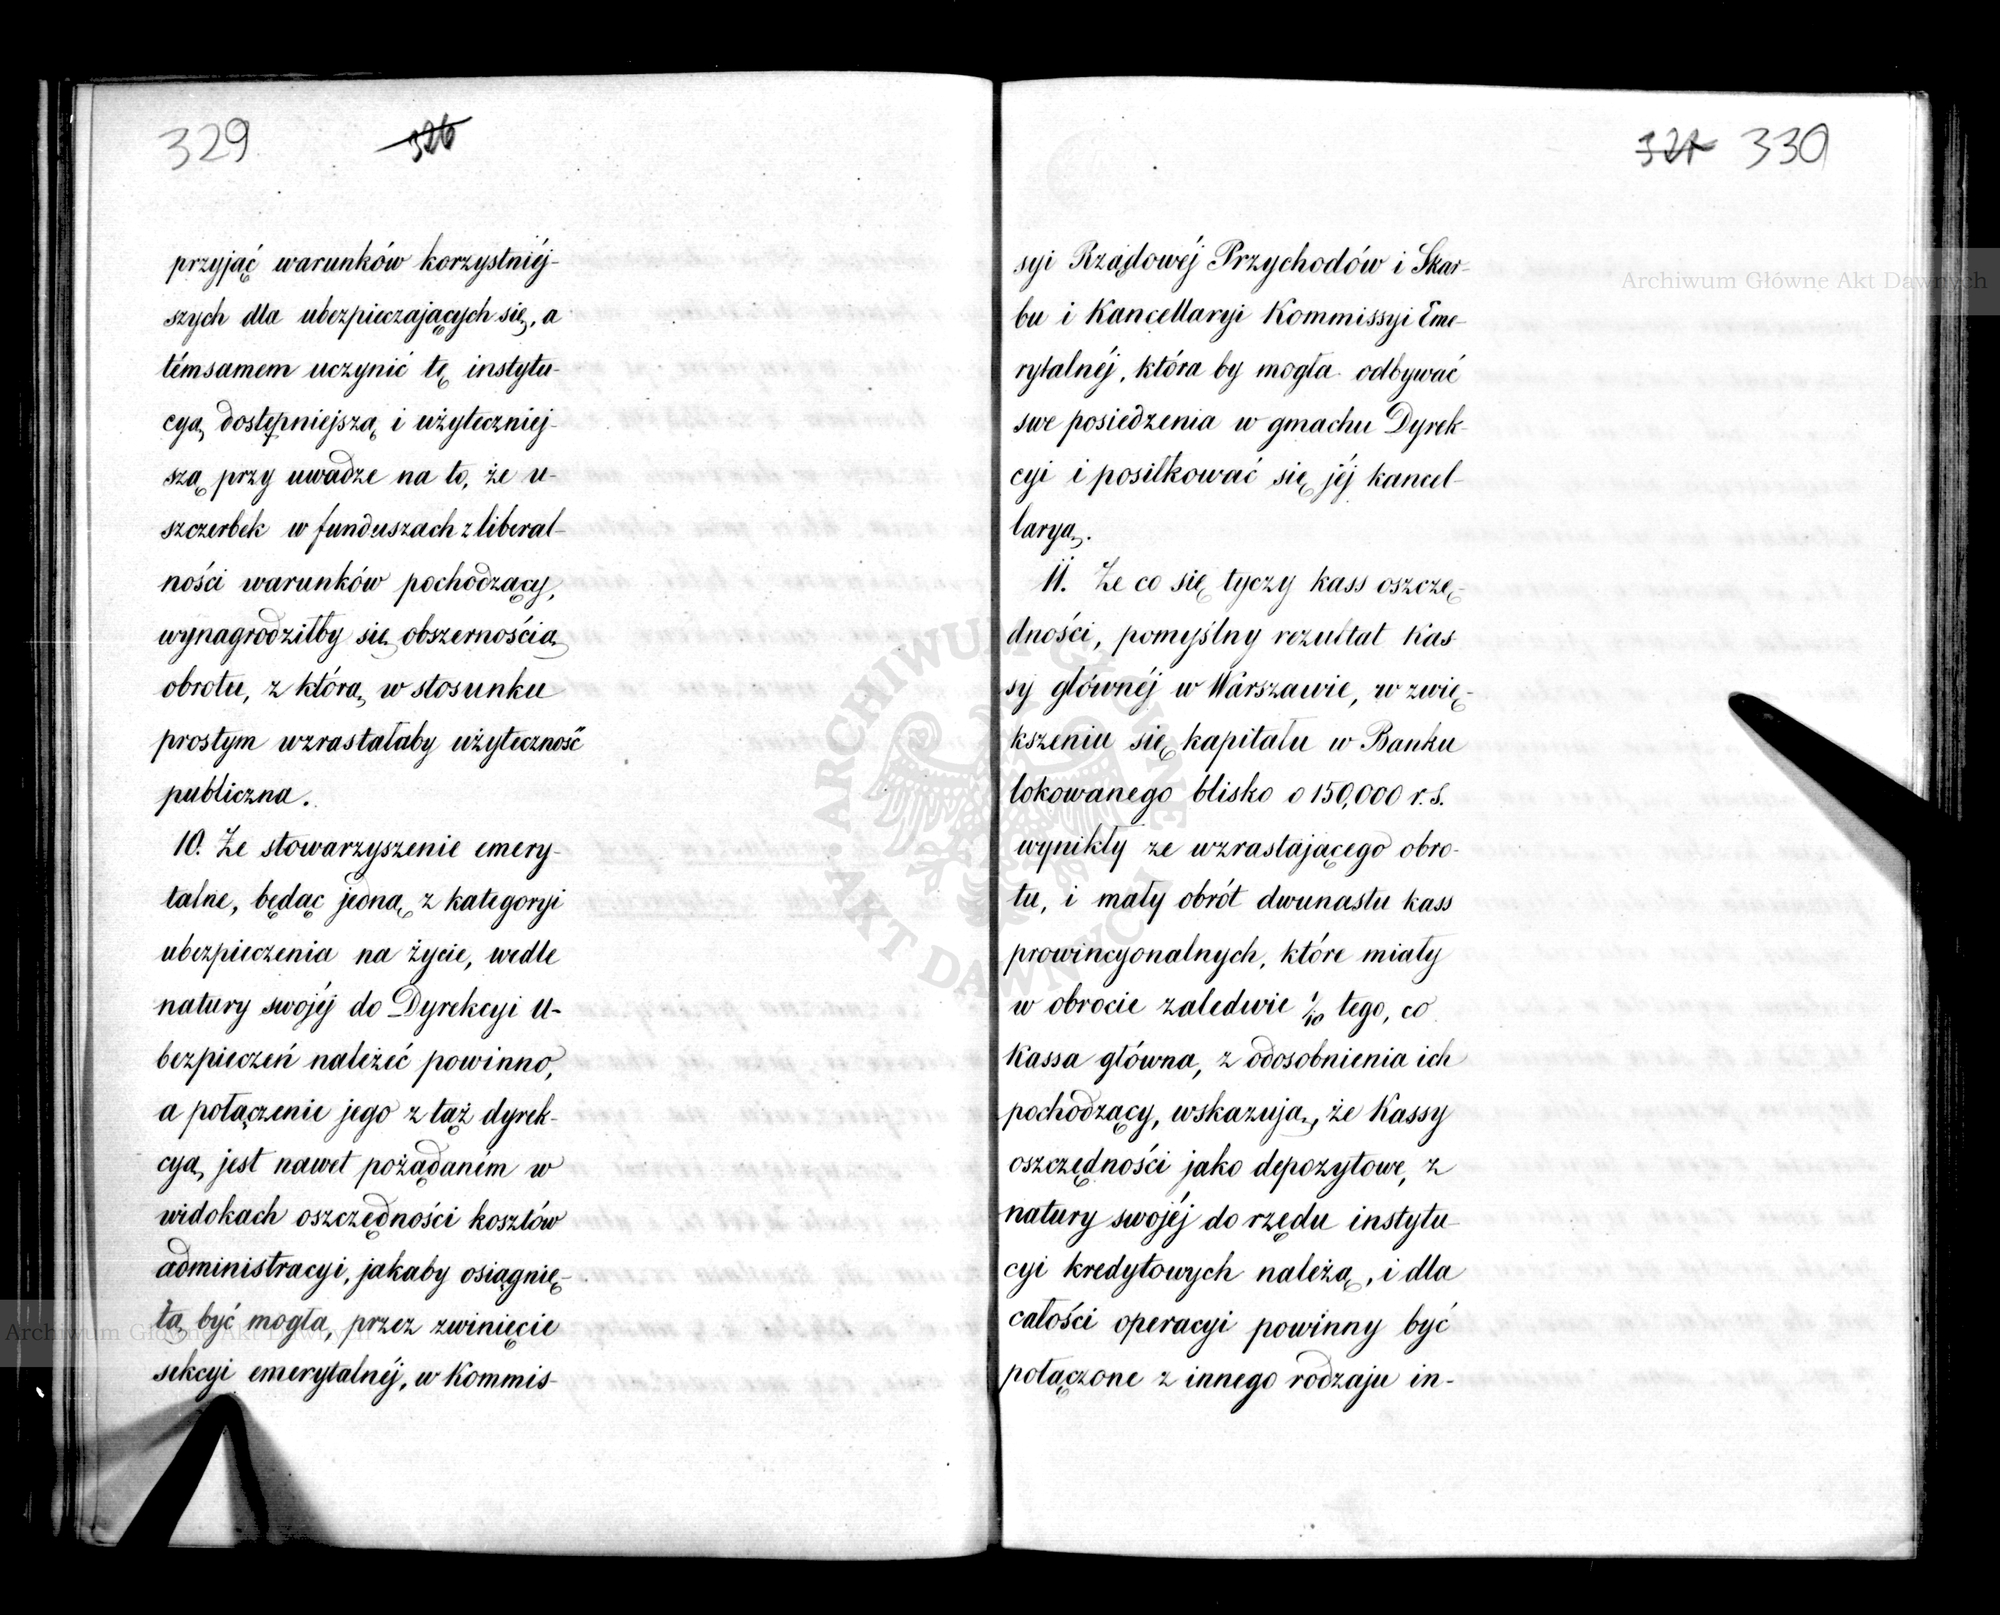 329 326
przyjąć warunków korzystniéj-
szych dla ubezpieczających się, a
témsamem uczynić tę instytu-
cyą dostępniejszą i użyteczniej-
szą przy uwadze na to, że u-
szczerbek w funduszach z liberal-
ności warunków pochodzący,
wynagrodziłby się obszernością
obrotu, z którą w stosunku
prostym wzrastałaby użyteczność
publiczna.
10. Że stowarzyszenie emery-
talne, będąc jedną z kategoryi
ubezpieczenia na życie, wedle
natury swojéj do Dyrekcyi U-
bezpieczeń należéć powinno,
a połączenie jego z tąż dyrek-
cyą jest nawet pożądaném w
widokach oszczędności kosztów
administracyi, jakaby osiągnię-
tą być mogła, przez zwinięcie
sekcyi emerytalnéj, w Kommis-
327 330
syi Rządowéj Przychodów i Skar-
bu i Kancellaryi Kommissyi Eme-
rytalnéj, która by mogła odbywać
swe posiedzenia w gmachu Dyrek-
cyi i posiłkować się jéj kancel-
laryą.
11. Że co się tyczy kass oszczę-
dności, pomyślny rezultat Kas
sy głównéj w Warszawie, w zwię-
kszeniu się kapitału w Banku
lokowanego blisko o 150,000 r.s.
wynikły ze wzrastającego obro-
tu, i mały obrót dwunastu kass
prowincyonalnych, które miały
w obrocie zaledwie 1/10 tego, co
Kassa główna, z odosobnienia ich
pochodzący, wskazują, że Kassy
oszczędności jako depozytowe, z
natury swojéj do rzędu instytu-
cyi kredytowych należą, i dla
całości operacyi powinny być
połączone z innego rodzaju in-
Archiwum Główne Akt Dawnych
Archiwum Główne Akt Dawnych
ARCHIWUM GŁÓWNE AKT DAWNYCH